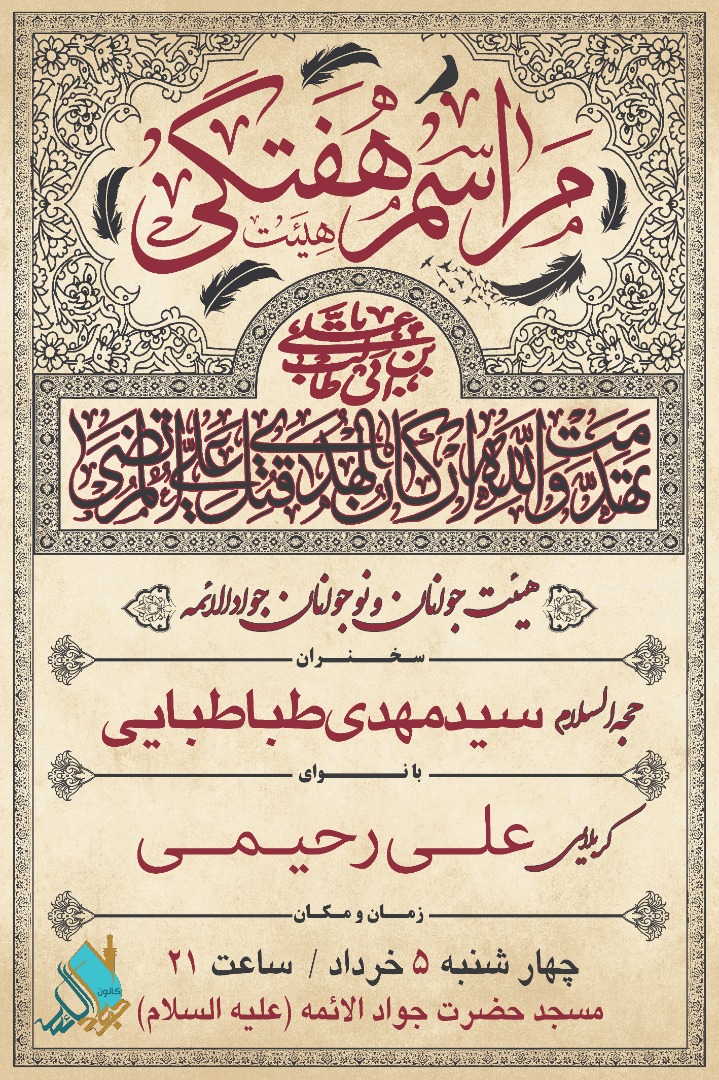 مراسم هفتگی
هیئت
یا علی بن ابی طالب
تهدمت والله ارکان الهدی قتل علی المرتضی
هیئت جوانان و نوجوانان جوادالائمه
سخنران
حجه السلام سیدمهدی طباطبایی
با نوای
کربلایی علی رحیمی
زمان و مکان
چهارشنبه ۵ خرداد / ساعت ۲۱
مسجد حضرت جواد الائمه (علیه السلام)
کانون
جوادالائمه